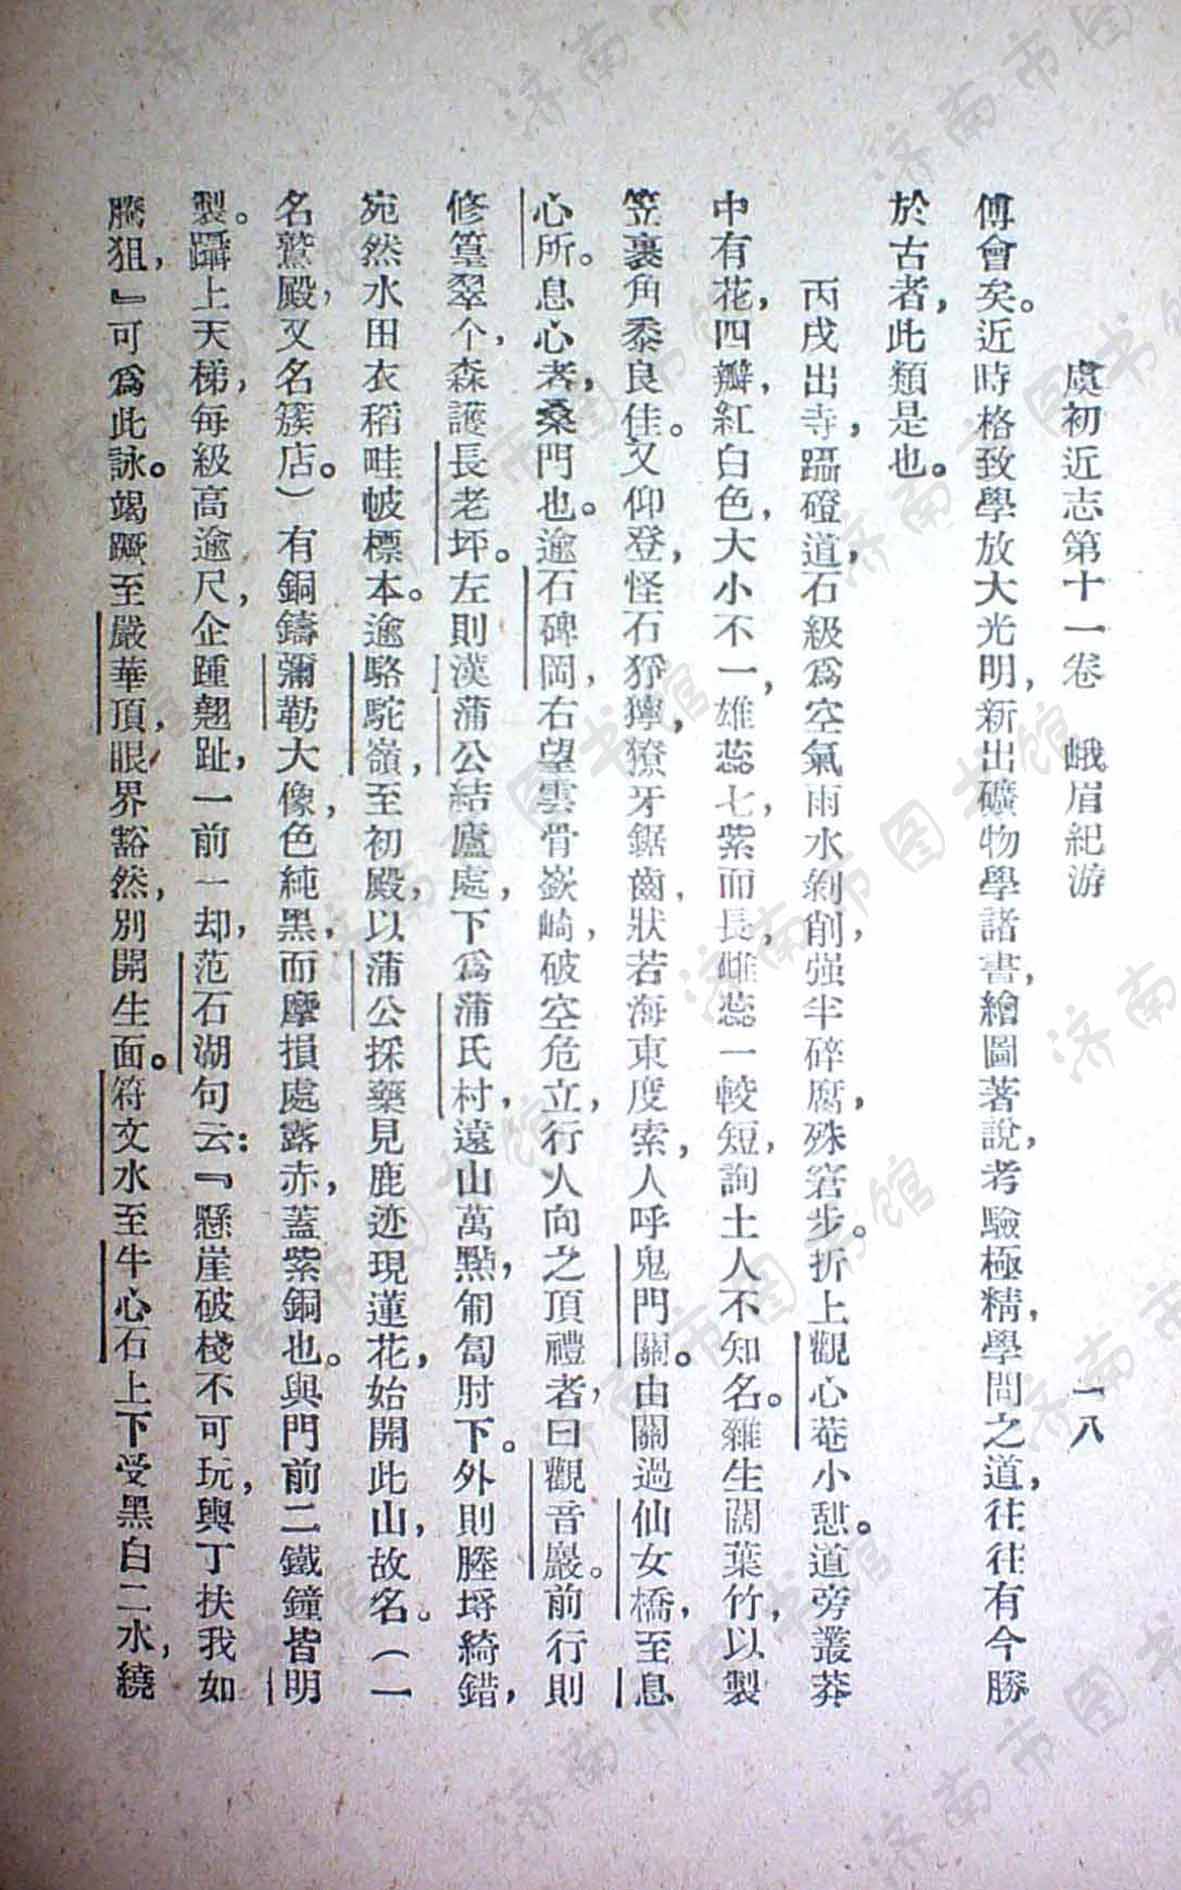 虞初近志第十一卷　峨眉紀游　一八
傅會矣。近時格致學放大光明，新出礦物學諸書，繪圖著說，考驗極精，學問之道，往往有今勝
於古者，此類是也。
丙戌出寺，躡磴道，石級爲空氣雨水剝削，强半碎腐，殊窘步。折上觀心菴小憩。道旁叢莽
中有花，四瓣，紅白色，大小不一，雄蕊七，紫而長，雌蕊一較短，詢土人不知名。雜生闊葉竹，以製
笠裹角黍良佳。又仰登，怪石猙獰，獠牙鋸齒，狀若海東度索，人呼鬼門關。由關過仙女橋，至息
心所。息心者，桑門也。逾石碑岡，右望雲骨嶔崎，破空危立，行人向之頂禮者，曰觀音巖。前行則
修篁翠个，森護長老坪。左則漢蒲公結廬處，下爲蒲氏村，遠山萬點，匍匐肘下。外則塍埒綺錯，
宛然水田衣稻畦帔標本。逾駱駝嶺，至初殿，以蒲公採藥見鹿迹現蓮花，始開此山，故名。（一
名鷲殿，又名簇店。）有銅鑄彌勒大像，色純黑，而摩損處露赤，蓋紫銅也。與門前二鐵鐘皆明
製。躡上天梯，每級高逾尺，企踵翹趾，一前一却，范石湖句云：『懸崖破棧不可玩，輿丁扶我如
騰狙，』可爲此詠。竭蹶至嚴華頂，眼界豁然，別開生面。符文水至牛心石上下受黑白二水，繞
济南市图书馆